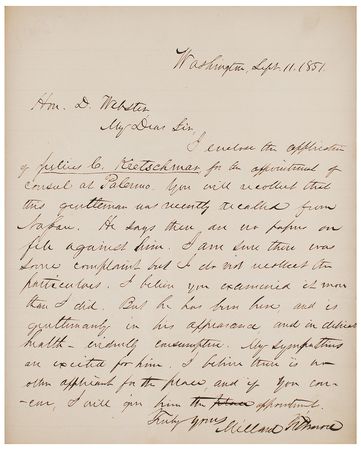 Washington, Sept. 11. 1851.
Hon. D. Webster
My Dear Sir,
I enclose the application
of Julius C. Kretschmar for the appointment of
consul at Palermo. You will recollect that
this gentleman was recently recalled from
Naples. He says there are no papers on
file against him. I am sure there was
some complaint but I do not recollect the
particulars. I believe you examined it more
than I did. But he has been here and is
gentlemanly in his appearance and in delicate
health - evidently consumptive. My sympathies
are excited for him. I believe there is no
other applicant for the place, and if you con-
cur, I will give him the place appointment.
Truly yours
Millard Fillmore